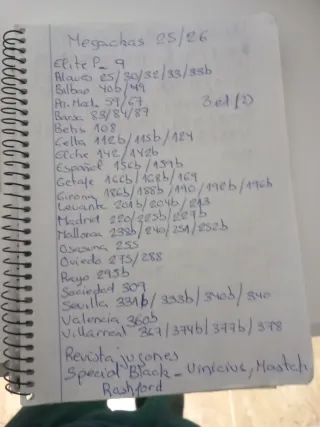 Megachas 25/26
Elite P- 9
Alaves 25/30/32/33/33b
Bilbao 40b/49
At. Mad. 59/67
Barsa 83/84/87
3 et (2)
Betis 108
Celta 112b/115b/124
Elche 142/142b
Español 156b/159b
Getafe 166b/168b/169
Girona 186b/188b/190/192b/196b
Levante 201b/204b/213
Madrid 220/225b/227b
Mallorca 238b/240/251/252b
Osasuna 255
Oviedo 275/288
Rayo 295b
Sociedad 309
Sevilla 331b/333b/340b/340
Valencia 360b
Villarreal 367/374b/377b/378
Revista jugones
Special Black - Vinicius, Mastch
Rashford